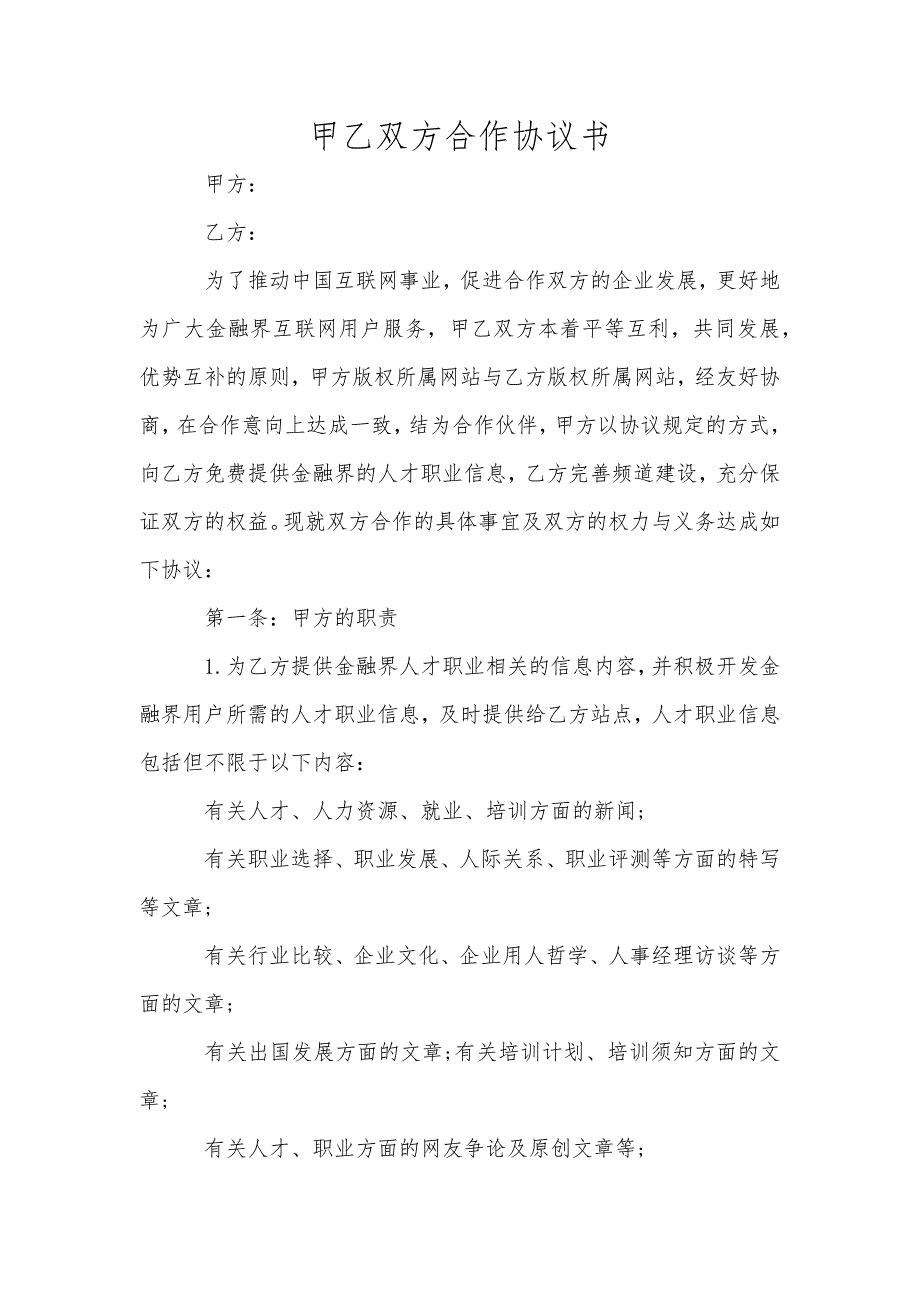 甲乙双方合作协议书
甲方：
乙方：
为了推动中国互联网事业，促进合作双方的企业发展，更好地
为广大金融界互联网用户服务，甲乙双方本着平等互利，共同发展，
优势互补的原则，甲方版权所属网站与乙方版权所属网站，经友好协
商，在合作意向上达成一致，结为合作伙伴，甲方以协议规定的方式，
向乙方免费提供金融界的人才职业信息，乙方完善频道建设，充分保
证双方的权益。现就双方合作的具体事宜及双方的权力与义务达成如
下协议：
第一条：甲方的职责
1.为乙方提供金融界人才职业相关的信息内容，并积极开发金
融界用户所需的人才职业信息，及时提供给乙方站点，人才职业信息
包括但不限于以下内容：
有关人才、人力资源、就业、培训方面的新闻;
有关职业选择、职业发展、人际关系、职业评测等方面的特写
等文章;
有关行业比较、企业文化、企业用人哲学、人事经理访谈等方
面的文章;
有关出国发展方面的文章;有关培训计划、培训须知方面的文
章;
有关人才、职业方面的网友争论及原创文章等;